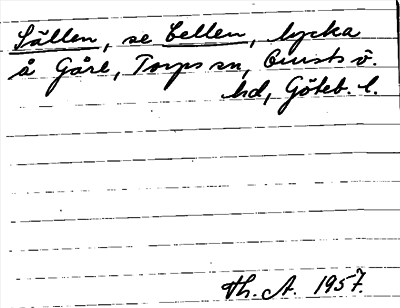 Sällen, se Cellen, lycka
å Gåre, Torps sn, Orusts v.
hd, Göteb. l.
Th. A. 1957.